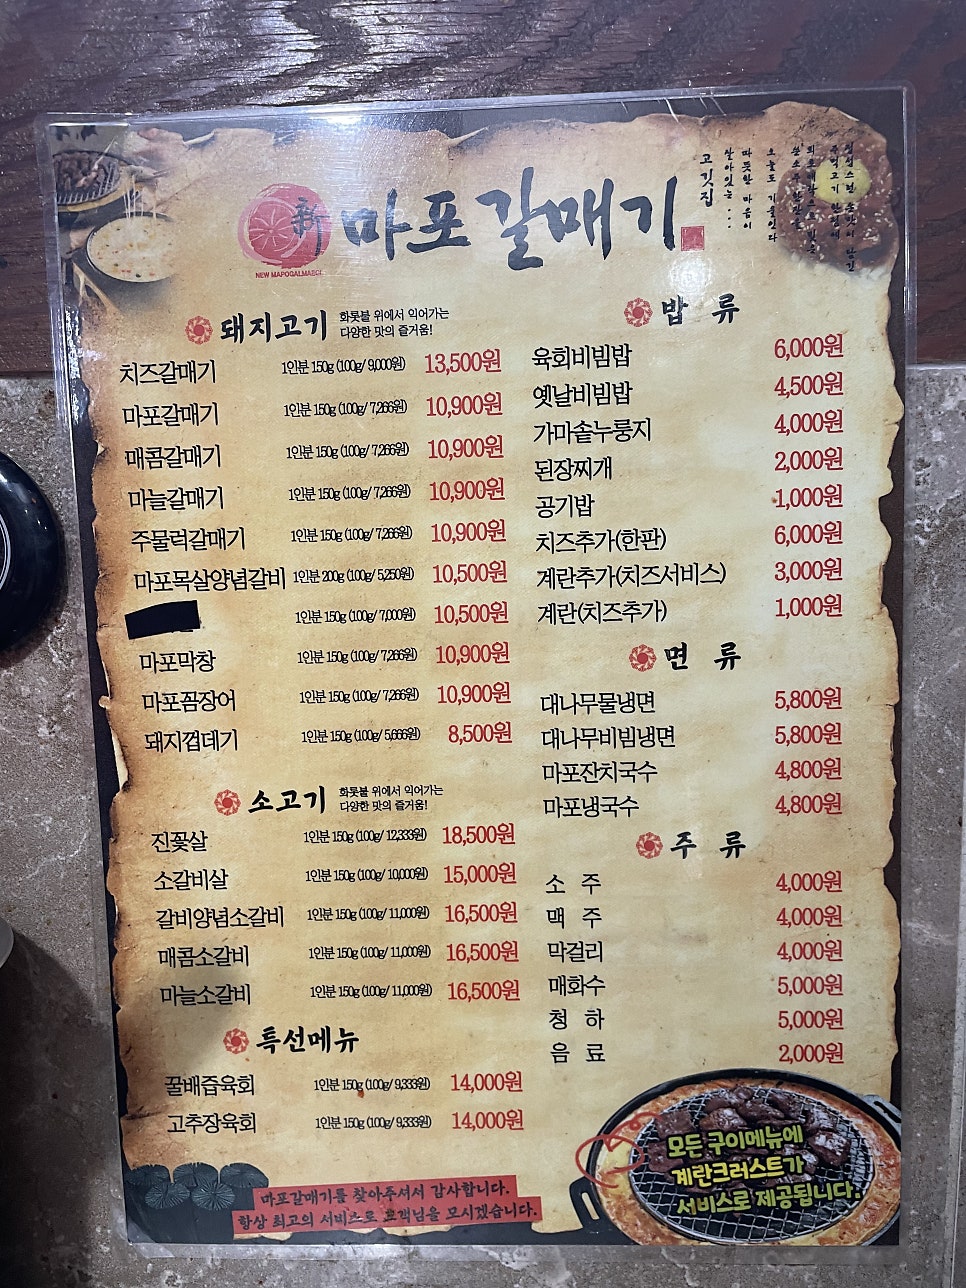 新 마포갈매기
NEW MAPOGALMAEGI
고깃집
살아있는...
따뜻한 마음이
오늘도 기울인다
돼지고기 화롯불 위에서 익어가는
다양한 맛의 즐거움!
치즈갈매기 1인분 150g (100g/ 9,000원) 13,500원
마포갈매기 1인분 150g (100g/ 7,266원) 10,900원
매콤갈매기 1인분 150g (100g/ 7,266원) 10,900원
마늘갈매기 1인분 150g (100g/ 7,266원) 10,900원
주물럭갈매기 1인분 150g (100g/ 7,266원) 10,900원
마포목살양념갈비 1인분 200g (100g/ 5,250원) 10,500원
1인분 150g (100g/ 7,000원) 10,500원
마포막창 1인분 150g (100g/ 7,266원) 10,900원
마포꼼장어 1인분 150g (100g/ 7,266원) 10,900원
돼지껍데기 1인분 150g (100g/ 5,666원) 8,500원
소고기 화롯불 위에서 익어가는
다양한 맛의 즐거움!
진꽃살 1인분 150g (100g/ 12,333원) 18,500원
소갈비살 1인분 150g (100g/ 10,000원) 15,000원
갈비양념소갈비 1인분 150g (100g/ 11,000원) 16,500원
매콤소갈비 1인분 150g (100g/ 11,000원) 16,500원
마늘소갈비 1인분 150g (100g/ 11,000원) 16,500원
특선메뉴
꿀배즙육회 1인분 150g (100g/ 9,333원) 14,000원
고추장육회 1인분 150g (100g/ 9,333원) 14,000원
밥 류
육회비빔밥 6,000원
옛날비빔밥 4,500원
가마솥누룽지 4,000원
된장찌개 2,000원
공기밥 1,000원
치즈추가(한판) 6,000원
계란추가(치즈서비스) 3,000원
계란(치즈추가) 1,000원
면 류
대나무물냉면 5,800원
대나무비빔냉면 5,800원
마포잔치국수 4,800원
마포냉국수 4,800원
주 류
소 주 4,000원
맥 주 4,000원
막걸리 4,000원
매화수 5,000원
청 하 5,000원
음 료 2,000원
모든 구이메뉴에
계란크러스트가
서비스로 제공됩니다.
마포갈매기를 찾아주셔서 감사합니다.
항상 최고의 서비스로 고객님을 모시겠습니다.